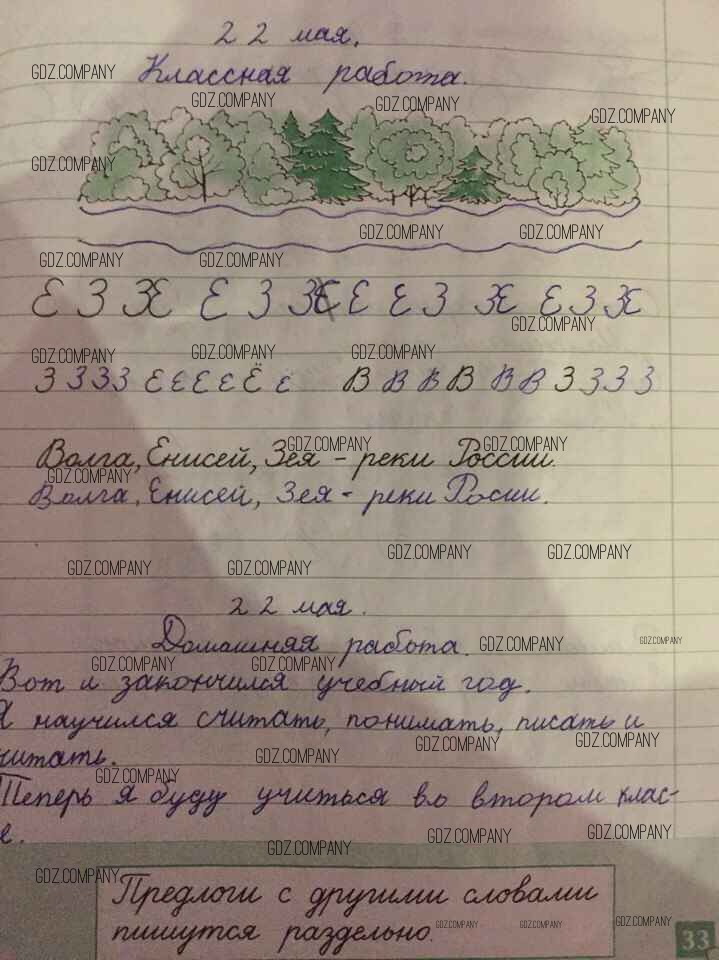 22 мая.
Классная работа.
Е З Ж Е З Ж Е Е З Ж Е З Ж
З З З З Е Е Е Е Ё Е В В В В В В З З З З
Волга, Енисей, Зея - реки России.
Волга, Енисей, Зея - реки Росии.
22 мая.
Домашняя работа.
Вот и закончился учебный год.
Я научился считать, понимать, писать и
читать.
Теперь я буду учиться во втором клас-
е.
Предлоги с другими словами
пишутся раздельно.
33
GDZ.COMPANY